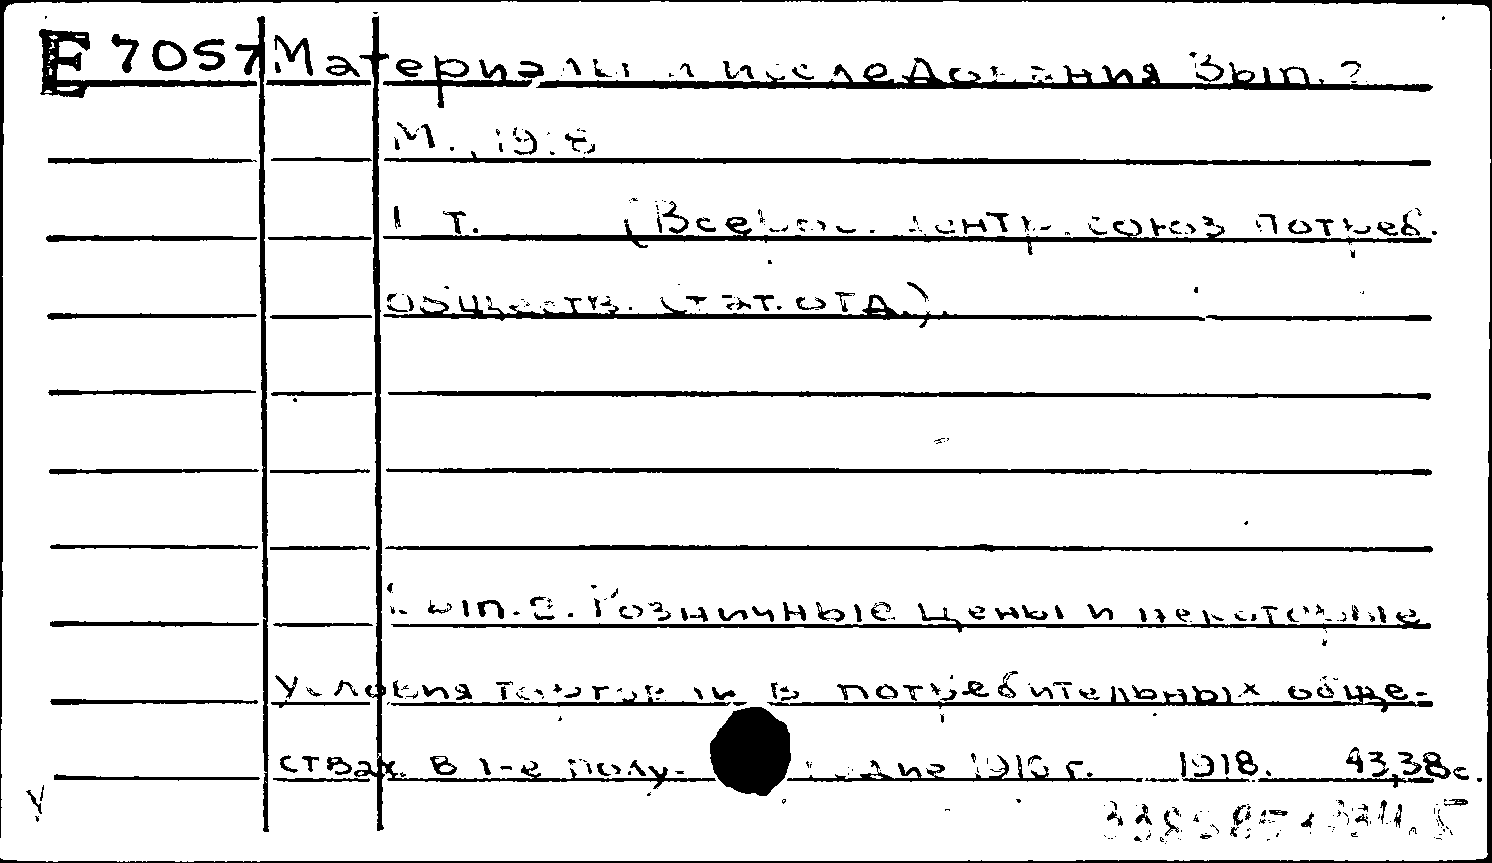 E 7057 Материалы и исследования Вып. 2
М., 1918
1 т. (Всерос. центр. союз потреб.
обществ. Стат. отд.).
Вып. 2. Розничные цены и некоторые
условия торговли в потребительных обще-
ствах в 1-е полу- годие 1918 г. 1918. 43,38с.